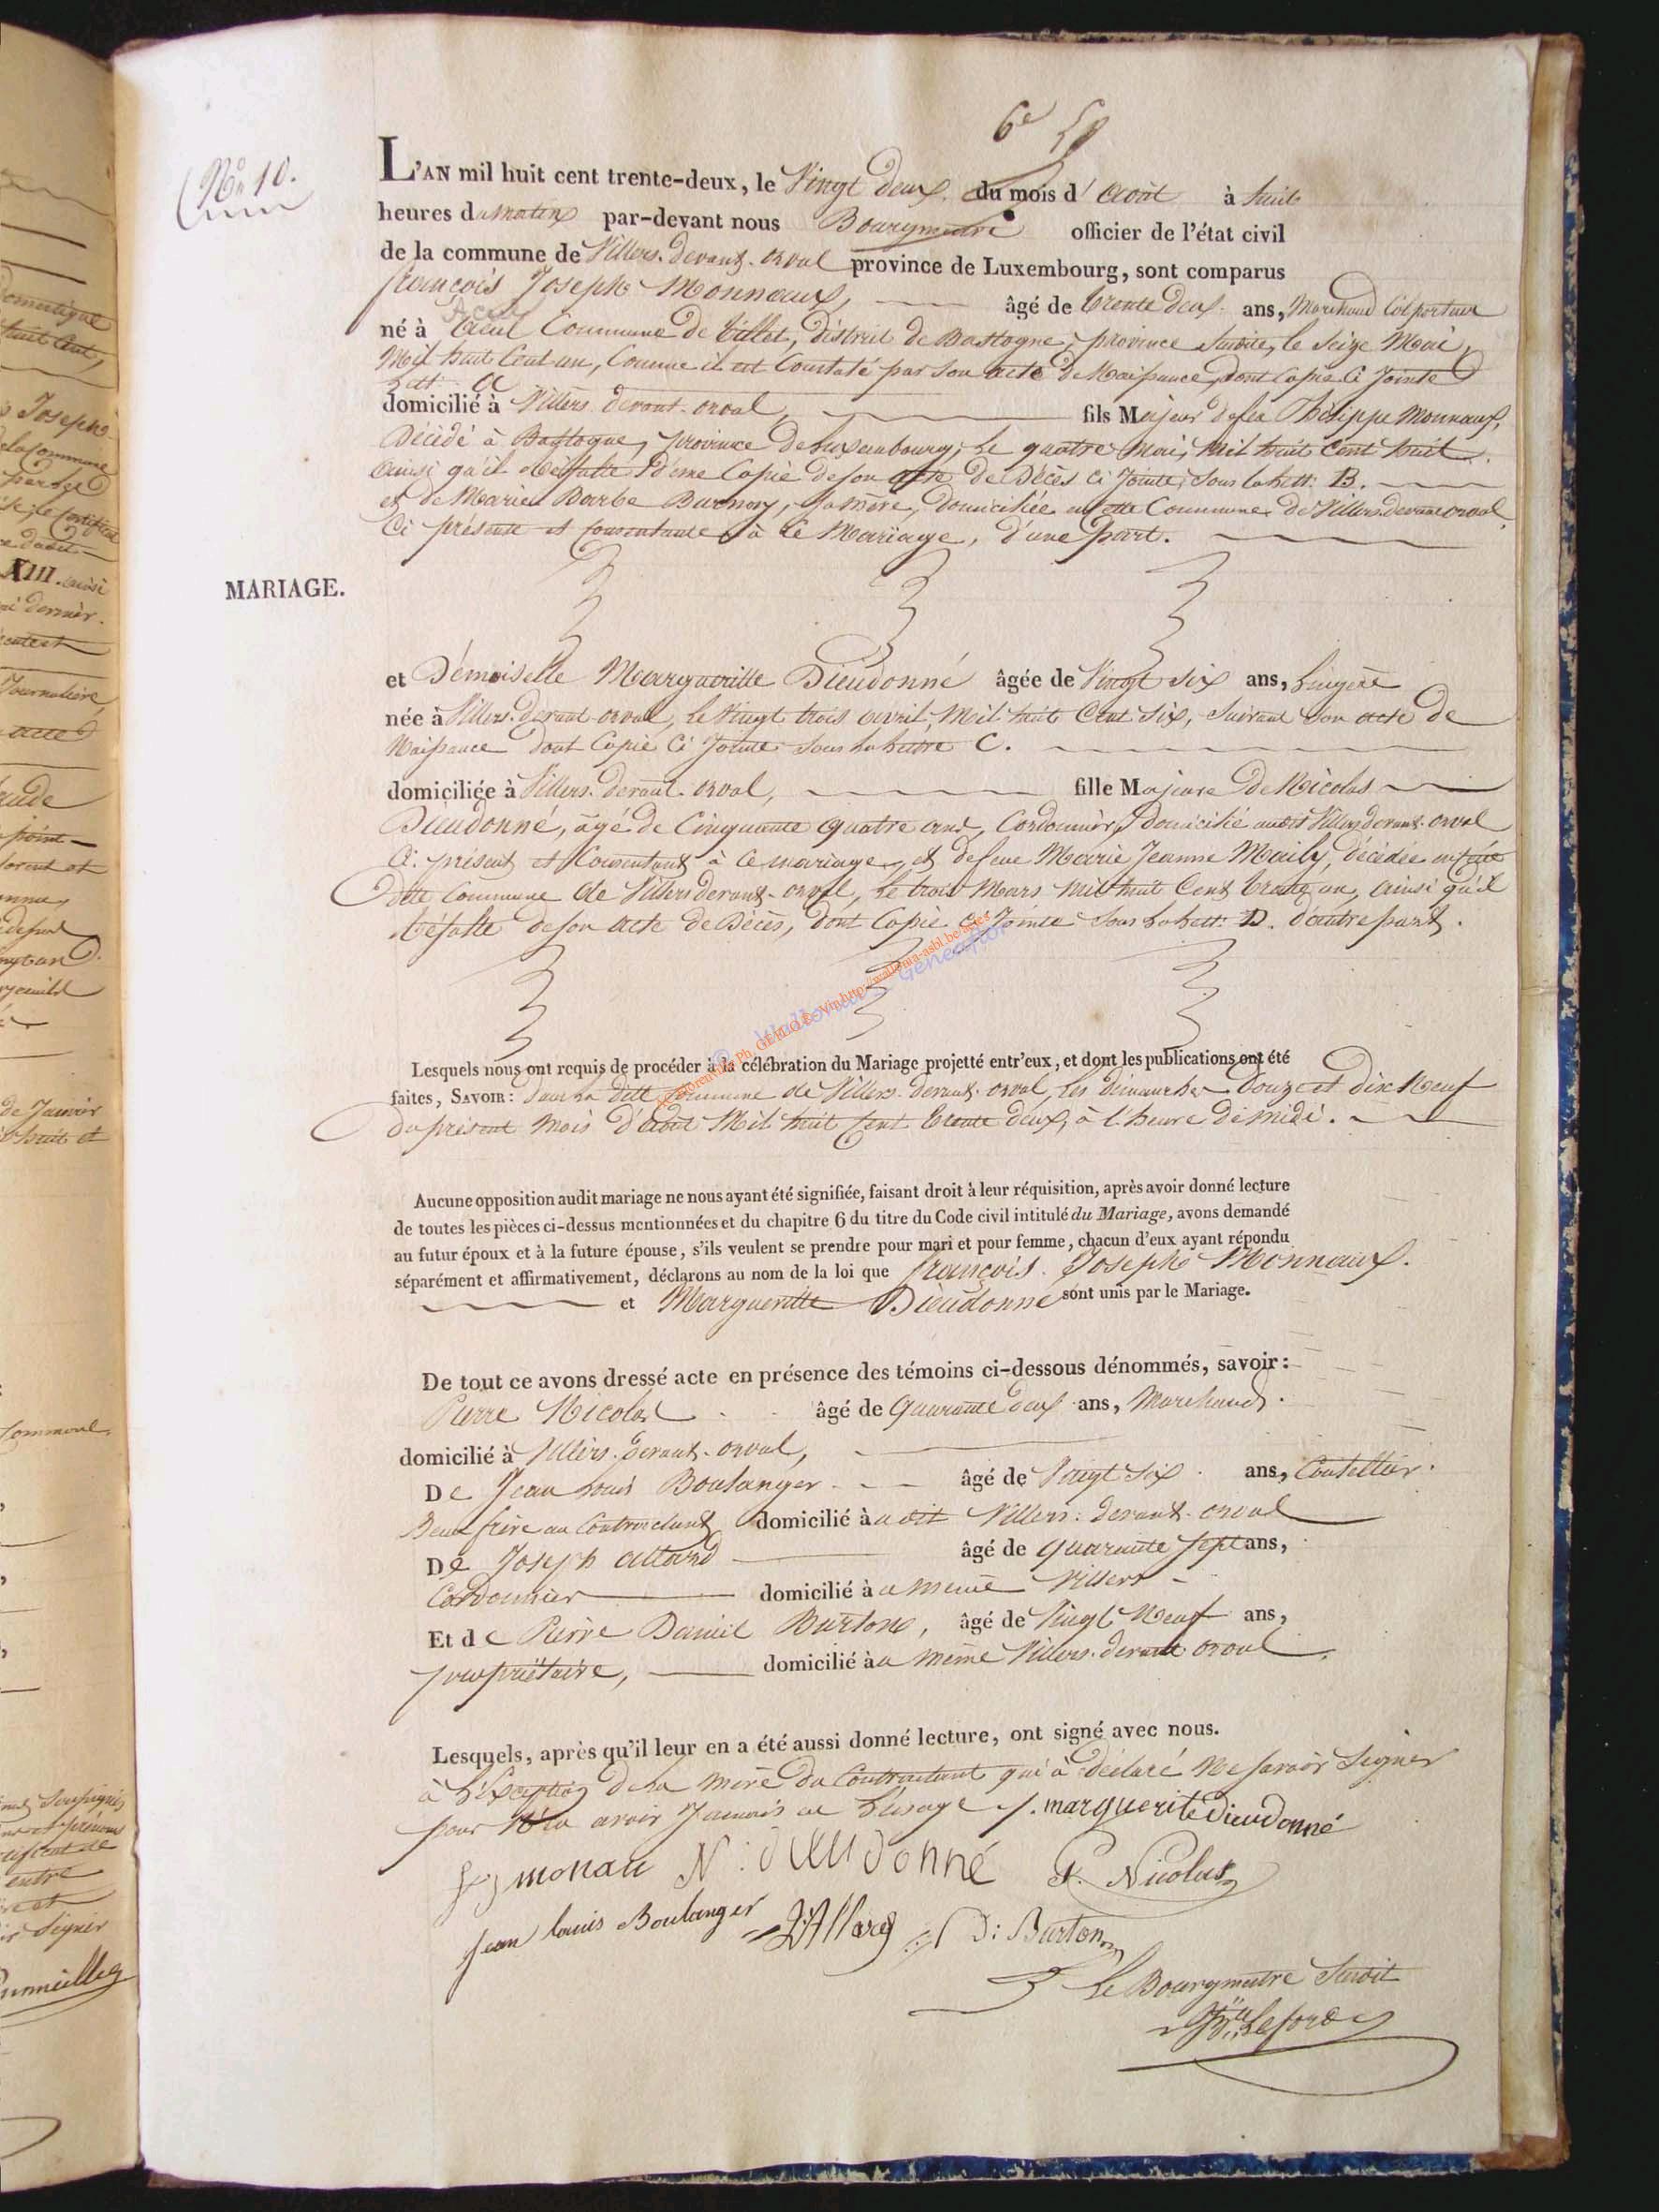 6e
No 10.
L'AN mil huit cent trente-deux, le Vingt deux du mois d'août à huit
heures du matin par-devant nous Bourgmestre officier de l'état civil
de la commune de Villers-devant-orval province de Luxembourg, sont comparus
françois Joseph Monnaux, âgé de trente deux ans, Marchand Colporteur
né à Commune de tillet, district de Bastogne, province susdite, le Seize Mai,
Mil huit Cent un, Comme il est Constaté par son acte de Naissance, dont Copie Ci Jointe
Lett. a
domicilié à Villers devant-orval, fils Majeur de feu Phèlippe Monnaux,
Décédé à Bastogne, province de Luxembourg, le quatre Mai, Mil huit Cent huit
ainsi qu'il Résulte d'ene Copie de son acte de Décès Ci Jointe Sous la lett: B.
et de Marie Barbe Burnory, sa mère, domiciliée en cette Commune de Villers devant orval,
Ci présente et Consentante à Ce Mariage, d'une part.
MARIAGE.
et Démoiselle Margueritte Dieudonné âgée de Vingt Six ans, Lingère
née à Villers-devant-orval, le Vingt trois avril, Mil huit Cent Six, Suivant son acte de
Naissance dont Copie Ci Jointe Sous la lettre C.
domiciliée à Villers-devant-orval, fille Majeure De Nicolas
Dieudonné, âgé de Cinquante quatre ans, Cordonnièr, domicilié audit Villers devant-orval
Ci-présent et Consentant à Ce mariage, et de feue Marie Jeanne Maily, décédée en
ditte Commune de Villers devant-orval, le trois Mars Mil huit Cent trente un, ainsi qu'il
Résulte de son acte de Décès, dont Copie Ci Jointe Sous la Lett: D. d'autre part.
Lesquels nous ont requis de procéder à la célébration du Mariage projetté entr'eux, et dont les publications ont été
faites, SAVOIR: Dans la Ditte Commune de Villers-devant-orval, les Dimanches Douze et Dix Neuf
du présent Mois d'août Mil huit Cent trente deux, à l'heure de midi.
Aucune opposition audit mariage ne nous ayant été signifiée, faisant droit à leur réquisition, après avoir donné lecture
de toutes les pièces ci-dessus mentionnées et du chapitre 6 du titre du Code civil intitulé du Mariage, avons demandé
au futur époux et à la future épouse, s'ils veulent se prendre pour mari et pour femme, chacun d'eux ayant répondu
séparément et affirmativement, déclarons au nom de la loi que françois Joseph Monnaux.
et Margueritte Dieudonné sont unis par le Mariage.
De tout ce avons dressé acte en présence des témoins ci-dessous dénommés, savoir:
Pierre Nicolas âgé de Quarante deux ans, Marchand.
domicilié à Villers-devant-orval,
De Jean Louis Boulanger âgé de Vingt Six ans, Coutellier.
Beau frère au Contractant domicilié à udit Villers-devant-orval
De Joseph Allard âgé de quarante sept ans,
Cordonnier domicilié à u même Villers
Et de Pierre Daniel Burton, âgé de Vingt Neuf ans,
propriétaire, domicilié à u même Villers-devant orval.
Lesquels, après qu'il leur en a été aussi donné lecture, ont signé avec nous.
à l'Exception de la mère du Contractant qui à déclaré Ne savoir Signer
pour N'en avoir Jamais eu l'usage. marguerite Dieudonné
monau N: dieudonné P. Nicolas
jean louis Boulanger J Allard D: Burton
Le Bourgmestre Susdit